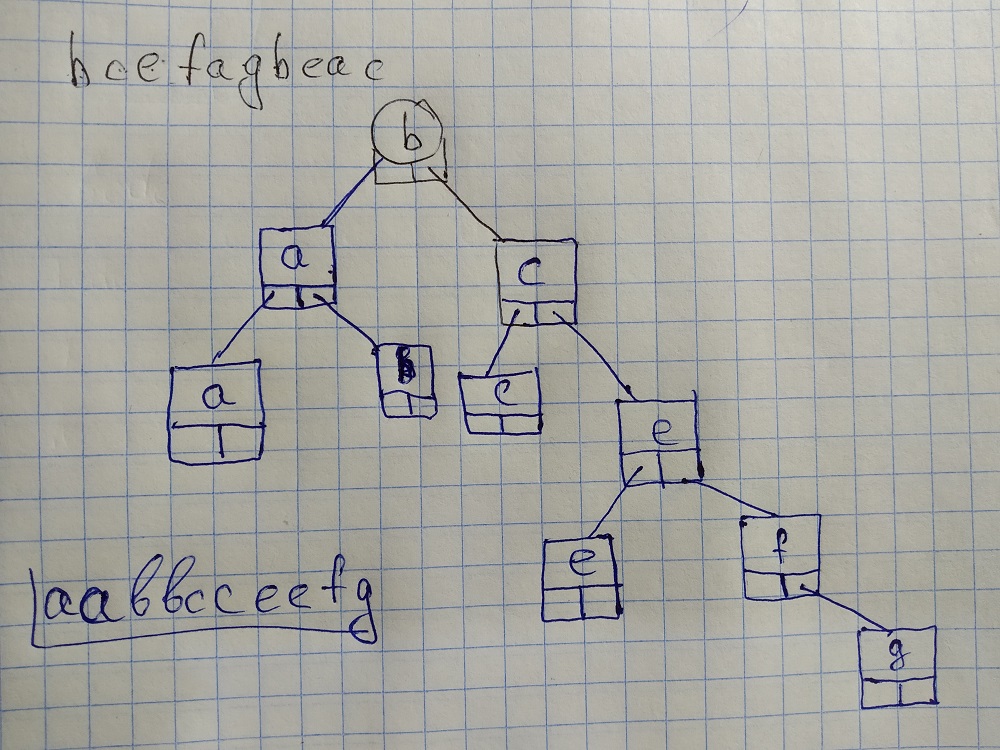 bcefagbeac
b
a c
a b c
e
e f
aabbcceefg
g